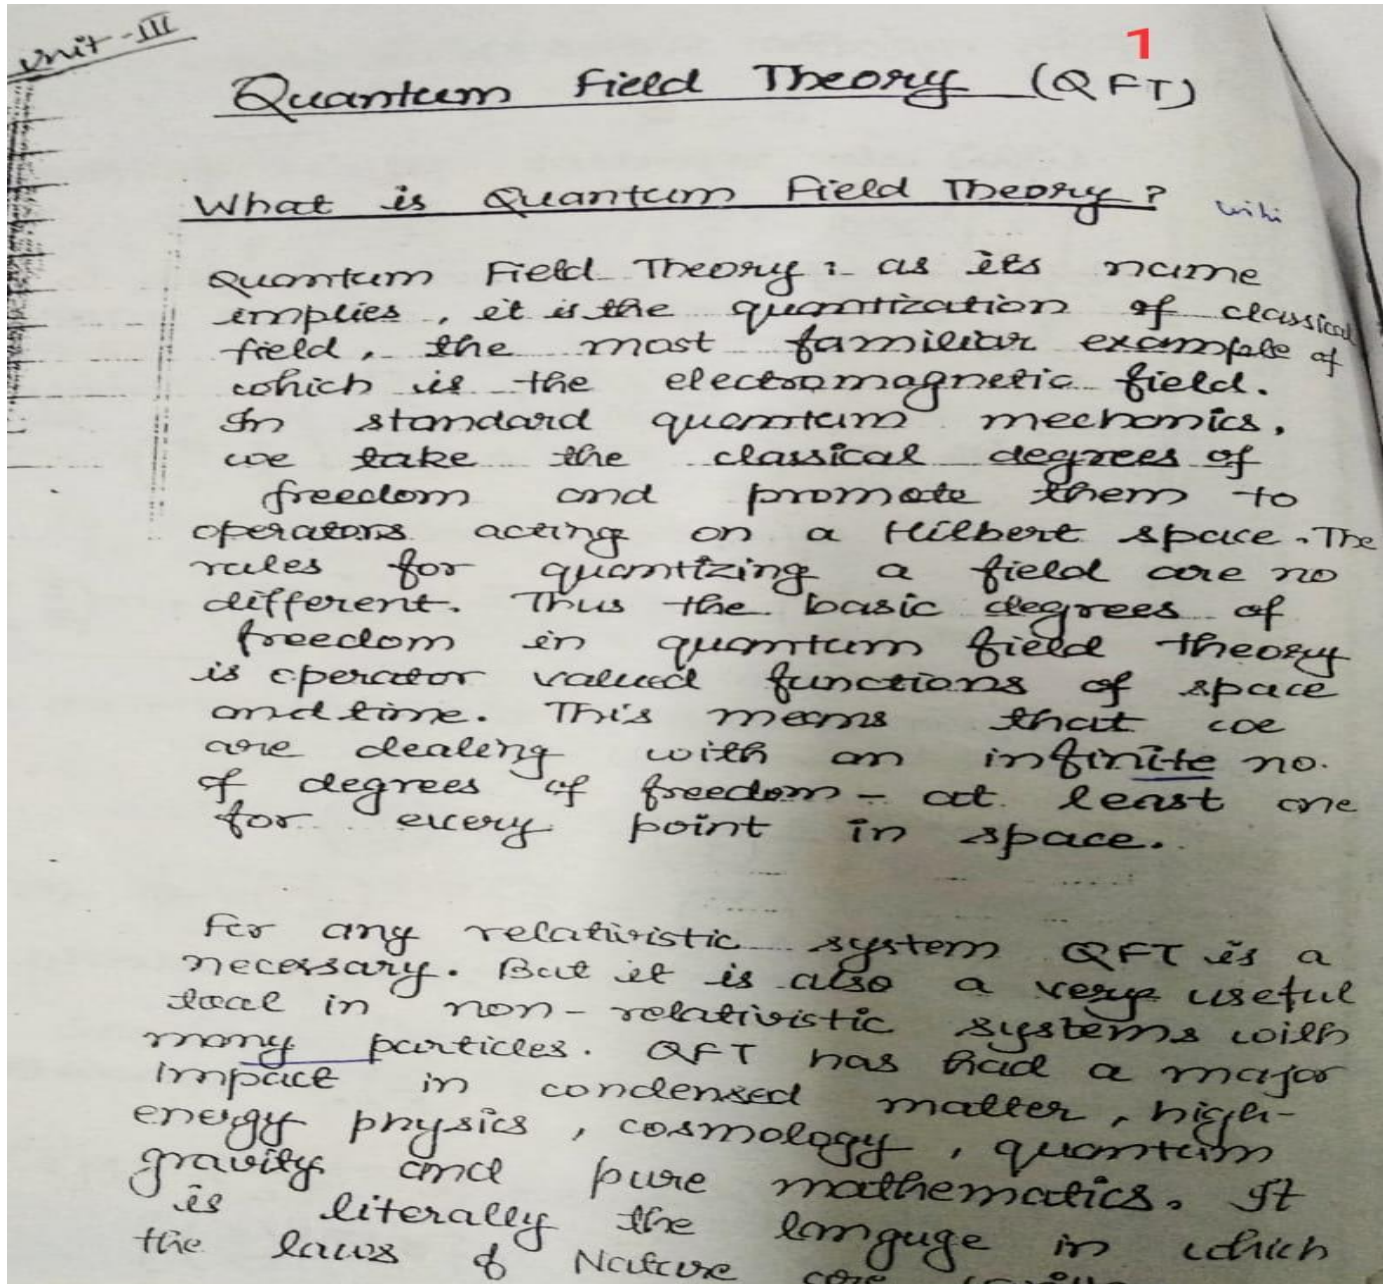 Unit-III
1
Quantum Field Theory (QFT)
What is Quantum Field Theory?
wiki
Quantum Field Theory :- as its name
implies, it is the quantization of classical
field, the most familiar example of
which is the electromagnetic field.
In standard quantum mechanics,
we take the classical degrees of
freedom and promote them to
operators acting on a Hilbert space. The
rules for quantizing a field are no
different. Thus the basic degrees of
freedom in quantum field theory
is operator valued functions of space
and time. This means that we
are dealing with an infinite no.
of degrees of freedom - at least one
for every point in space.
For any relativistic system QFT is a
necessary. But it is also a very useful
tool in non-relativistic systems with
many particles. QFT has had a major
impact in condensed matter, high-
energy physics, cosmology, quantum
gravity and pure mathematics. It
is literally the languge in which
the laws of Nature are